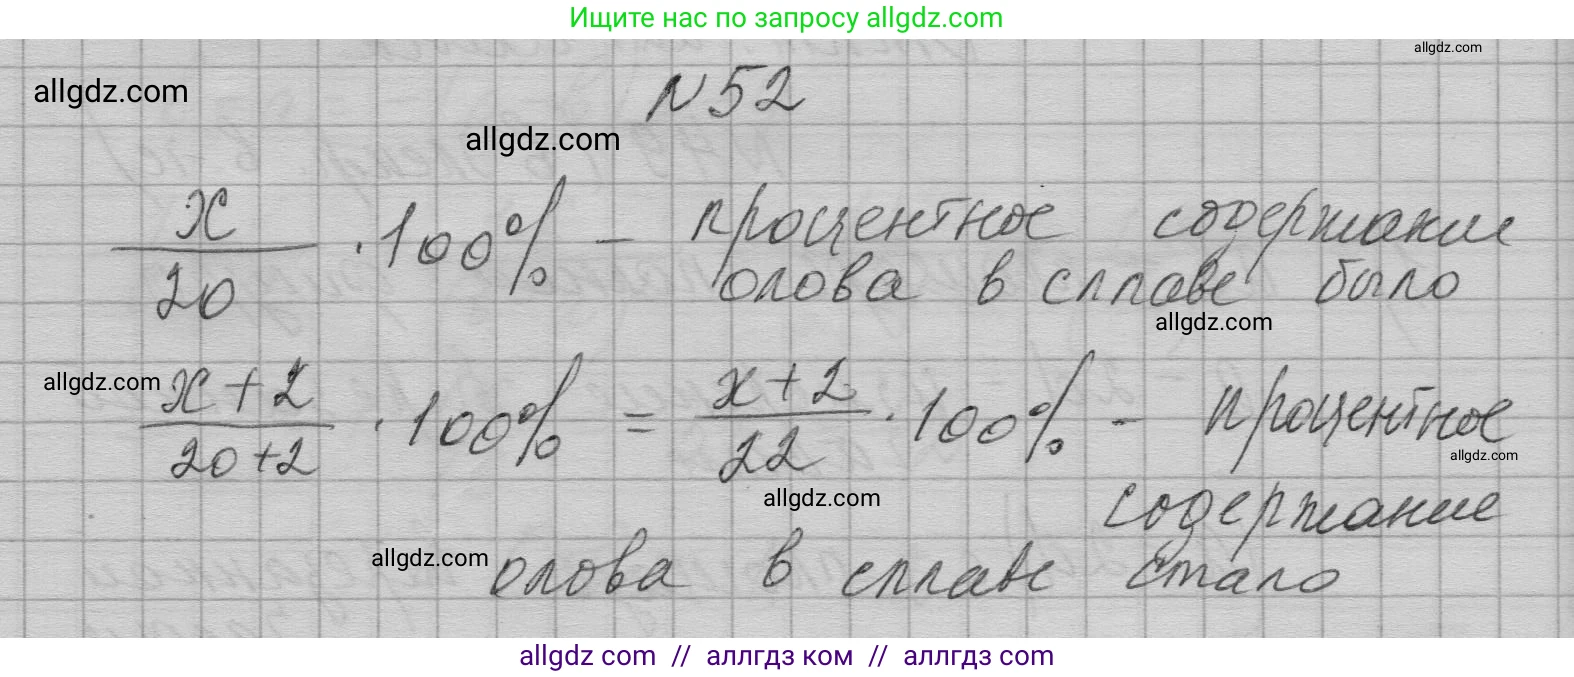 Ищите нас по запросу allgdz.com
allgdz.com
allgdz.com
N 52
allgdz.com
x/20 · 100% – процентное содержание
олова в сплаве было
allgdz.com
allgdz.com
x+2/20+2 · 100% = x+2/22 · 100% – процентное
allgdz.com
allgdz.com
содержание
allgdz.com
олова в сплаве стало
allgdz com // аллгдз ком // allgdz com